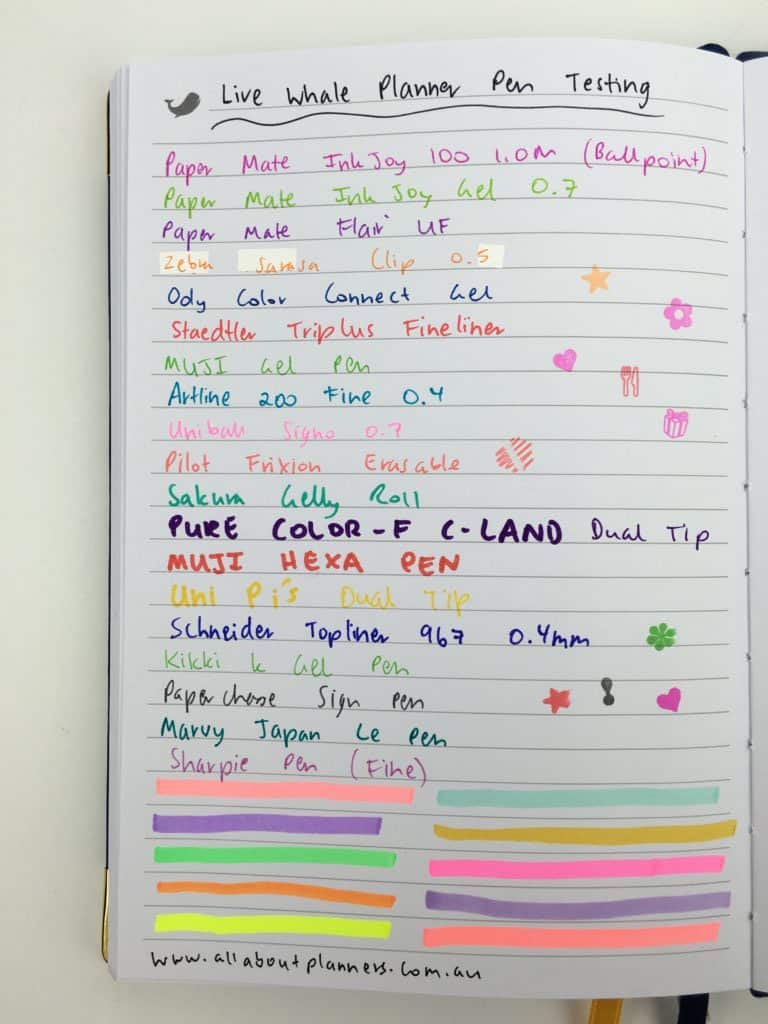 Live Whale Planner Pen Testing
Paper Mate InkJoy 100 1.0M (Ballpoint)
Paper Mate InkJoy Gel 0.7
Paper Mate Flair UF
Zebra Sarasa Clip 0.5
Ody Color Connect Gel
Staedtler Triplus Fineliner
MUJI Gel Pen
Artline 200 Fine 0.4
Uniball Signo 0.7
Pilot Frixion Erasable
Sakura Gelly Roll
PURE COLOR-F C-LAND Dual Tip
MUJI HEXA PEN
Uni Pi's Dual Tip
Schneider Topliner 967 0.4mm
Kikki k Gel Pen
Paperchase Sign Pen
Marvy Japan Le Pen
Sharpie Pen (Fine)
www.allaboutplanners.com.au